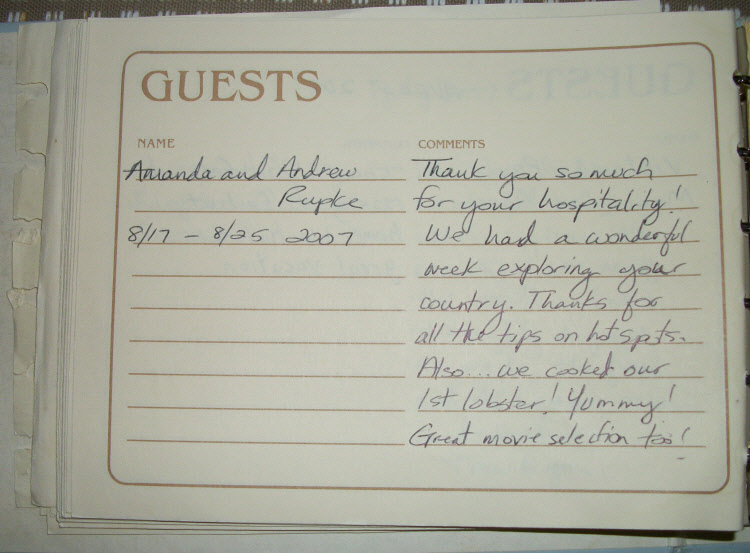 GUESTS
NAME
COMMENTS
Amanda and Andrew
Rupke
8/17 - 8/25 2007
Thank you so much
for your hospitality!
We had a wonderful
week exploring your
country. Thanks for
all the tips on hotspots.
Also... we cooked our
1st lobster! Yummy!
Great movie selection too!